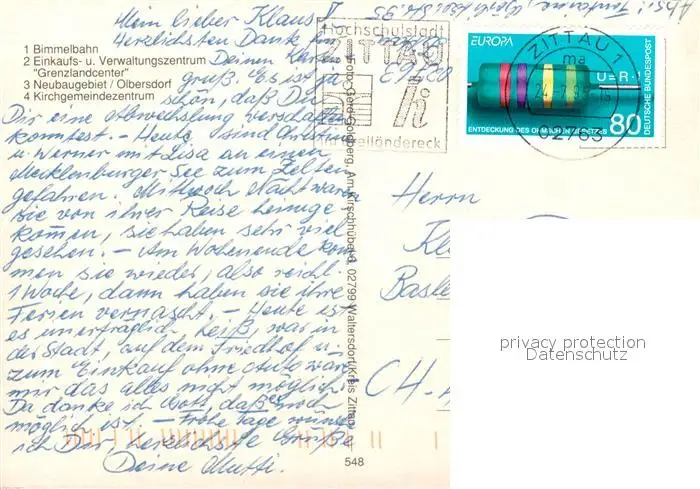 1 Bimmelbahn
2 Einkaufs- u. Verwaltungszentrum
"Grenzlandcenter"
3 Neubaugebiet / Olbersdorf
4 Kirchgemeindezentrum
Mein lieber Klaus!
Herzlichsten Dank für
Deinen Karten-
gruß. Es ist ja
schön, daß Du
Dir eine Abwechslung verschaffen
konntest. – Heute sind Christine
u. Werner mit Lisa an einen
Mecklenburger See zum Zelten
gefahren. Mittwoch Nacht waren
sie von ihrer Reise heimge
kommen, sie haben sehr viel
gesehen. – Am Wochenende kom
men sie wieder, also reichl.
1 Woche, dann haben sie ihre
Ferien vernascht. – Heute ist
es unerträglich heiß, war in
der Stadt, auf dem Friedhof u.
zum Einkauf ohne Auto wäre
mir das alles nicht möglich.
Da danke ich Gott, daß es noch
möglich ist. – Frohe Tage wünsche
ich Dir, herzlichste Grüße
Deine Mutti.
Hochschulstadt
ZITTAU
im Dreiländereck
Foto: Gerd Goldberg, Am Kirschhübel 8, 02799 Waltersdorf/Kreis Zittau
548
EUROPA
U=R·I
ENTDECKUNG DES OHMSCHEN GESETZES
80
DEUTSCHE BUNDESPOST
ZITTAU 1
ma
02763
Herrn
Kl
Basle
CH-
privacy protection
Datenschutz